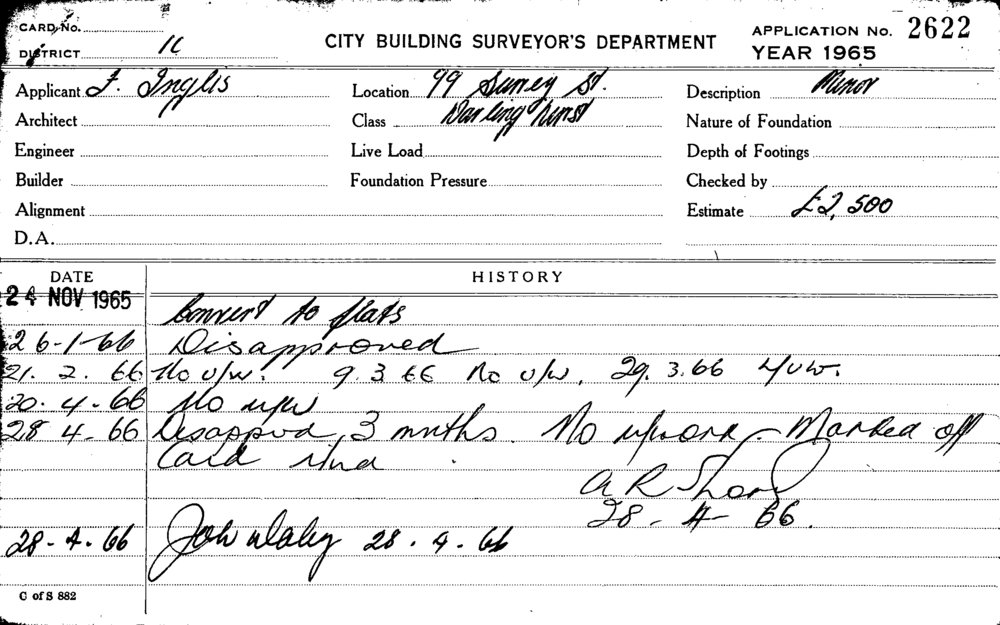 CARD No.
DISTRICT
CITY BUILDING SURVEYOR'S DEPARTMENT
APPLICATION No. 2622
YEAR 1965
Applicant F. Inglis
Location 99 Surrey St.
Description Minor
Architect
Class Darlinghurst
Nature of Foundation
Engineer
Live Load
Depth of Footings
Builder
Foundation Pressure
Checked by
Alignment
Estimate £2,500
D.A.
DATE
HISTORY
24 NOV 1965
Convert to flats
26-1-66 Disapproved
21. 2. 66 No u/w. 9.3.66 No u/w. 29.3.66 N/u/w.
20. 4. 66 No u/w
28 4. 66 Disappvd 3 mnths. No upwork - Marked off
Card
28 - 4 - 66.
28. 4. 66 John 28. 4. 66
C of S 882